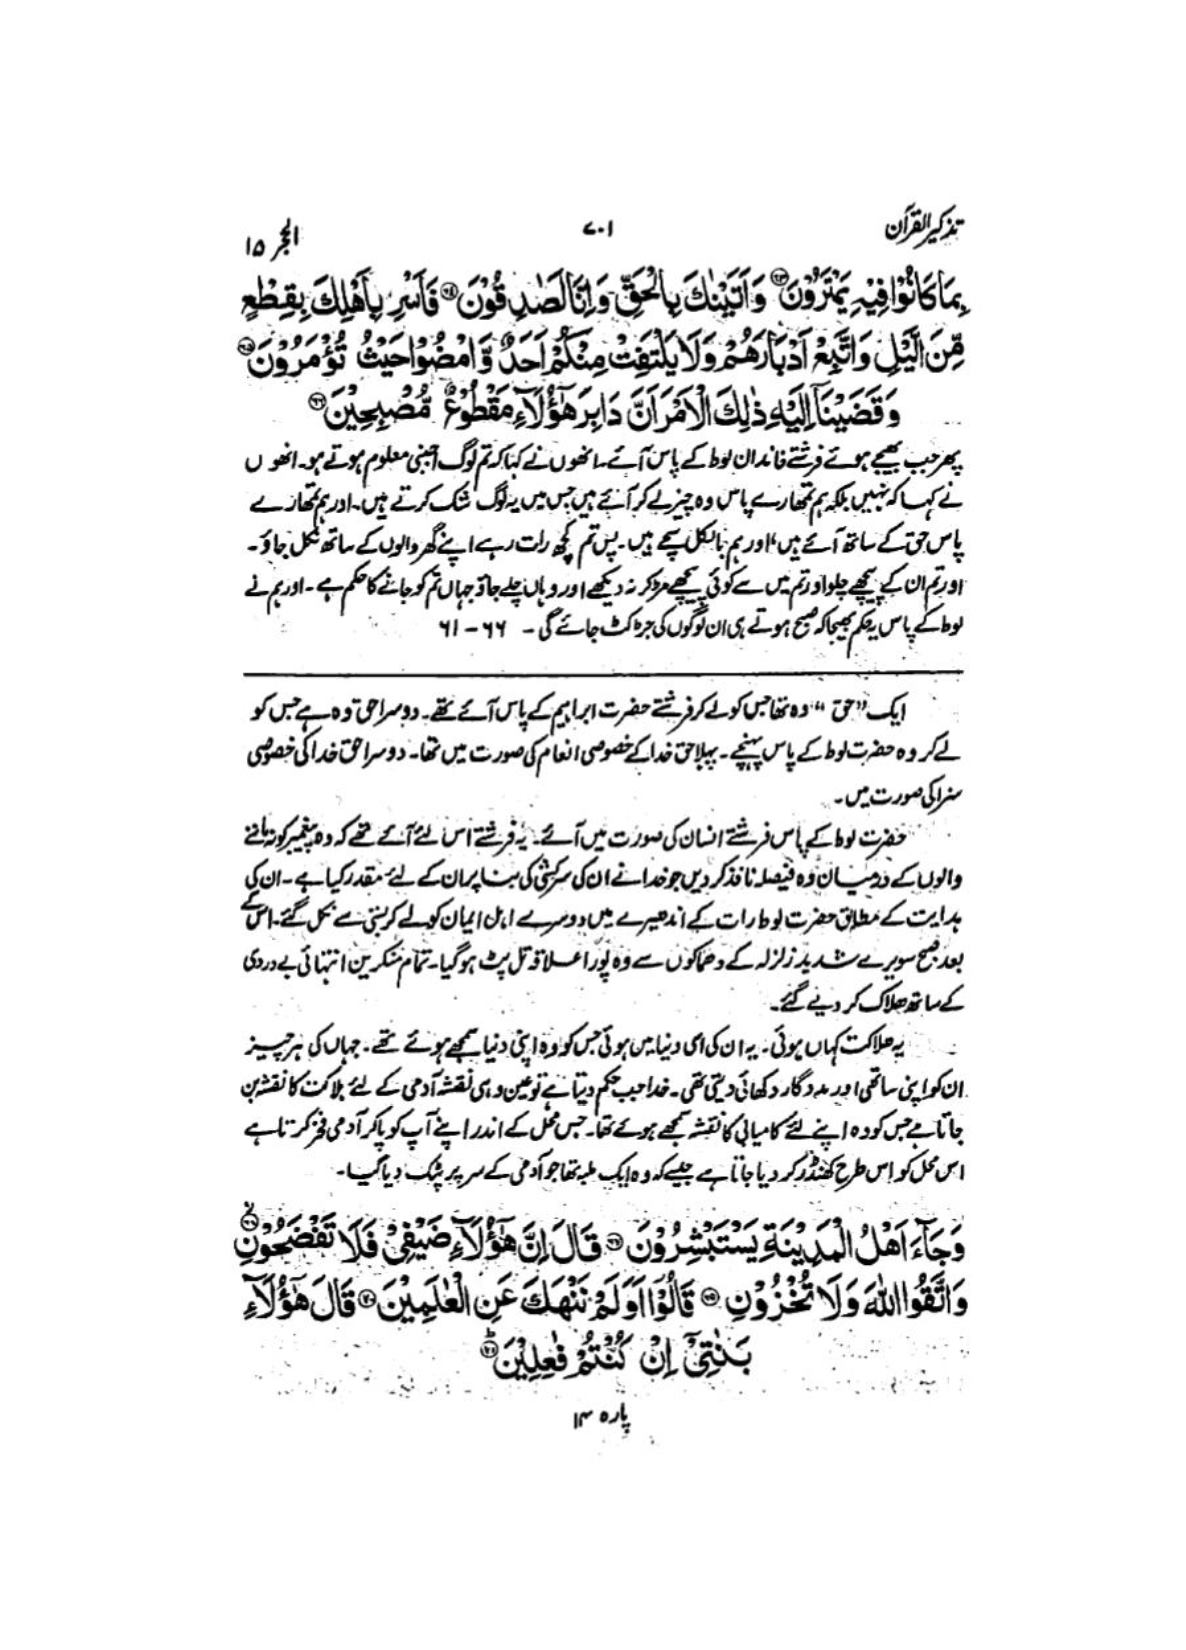 تذکیر القرآن ۷۰۱ الحجر ۱۵
بِمَا كَانُوْا فِيْهِ يَمْتَرُوْنَ ۝۶۳ وَاَتَيْنٰكَ بِالْحَقِّ وَاِنَّا لَصٰدِقُوْنَ ۝۶۴ فَاَسْرِ بِاَهْلِكَ بِقِطْعٍ
مِّنَ الَّيْلِ وَاتَّبِعْ اَدْبَارَهُمْ وَلَا يَلْتَفِتْ مِنْكُمْ اَحَدٌ وَّامْضُوْا حَيْثُ تُؤْمَرُوْنَ ۝۶۵
وَقَضَيْنَآ اِلَيْهِ ذٰلِكَ الْاَمْرَ اَنَّ دَابِرَ هٰٓؤُلَآءِ مَقْطُوْعٌ مُّصْبِحِيْنَ ۝۶۶
پھر جب بھیجے ہوئے فرشتے خاندان لوط کے پاس آئے۔ انھوں نے کہا کہ تم لوگ اجنبی معلوم ہوتے ہو۔ انھوں
نے کہا کہ نہیں بلکہ ہم تمھارے پاس وہ چیز لے کر آئے ہیں جس میں یہ لوگ شک کرتے ہیں۔ اور ہم تمھارے
پاس حق کے ساتھ آئے ہیں، اور ہم بالکل سچے ہیں۔ پس تم کچھ رات رہے اپنے گھر والوں کے ساتھ نکل جاؤ۔
اور تم ان کے پیچھے چلو اور تم میں سے کوئی پیچھے مڑ کر نہ دیکھے اور وہاں چلے جاؤ جہاں تم کو جانے کا حکم ہے۔ اور ہم نے
لوط کے پاس یہ حکم بھیجا کہ صبح ہوتے ہی ان لوگوں کی جڑ کٹ جائے گی۔ ۶۶ - ۶۱
ایک "حق" وہ تھا جس کو لے کر فرشتے حضرت ابراہیم کے پاس آئے تھے۔ دوسرا حق وہ ہے جس کو
لے کر وہ حضرت لوط کے پاس پہنچے۔ پہلا حق خدا کے خصوصی انعام کی صورت میں تھا۔ دوسرا حق خدا کی خصوصی
سزا کی صورت میں۔
حضرت لوط کے پاس فرشتے انسان کی صورت میں آئے۔ یہ فرشتے اس لئے آئے تھے کہ وہ پیغمبر کو نہ ماننے
والوں کے درمیان وہ فیصلہ نافذ کر دیں جو خدا نے ان کی سرکشی کی بنا پر ان کے لئے مقدر کیا ہے۔ ان کی
ہدایت کے مطابق حضرت لوط رات کے اندھیرے میں دوسرے اہل ایمان کو لے کر بستی سے نکل گئے۔ اس کے
بعد صبح سویرے شدید زلزلہ کے دھماکوں سے وہ پورا علاقہ تل پٹ ہوگیا۔ تمام منکرین انتہائی بے دردی
کے ساتھ ھلاک کر دیے گئے۔
یہ ھلاکت کہاں ہوئی۔ یہ ان کی اسی دنیا میں ہوئی جس کو وہ اپنی دنیا سمجھے ہوئے تھے۔ جہاں کی ہر چیز
ان کو اپنی ساتھی اور مددگار دکھائی دیتی تھی۔ خدا جب حکم دیتا ہے تو عین وہی نقشہ آدمی کے لئے ہلاکت کا نقشہ بن
جاتا ہے جس کو وہ اپنے لئے کامیابی کا نقشہ سمجھے ہوئے تھا۔ جس محل کے اندر اپنے آپ کو پا کر آدمی فخر کرتا ہے
اس محل کو اس طرح کھنڈر کر دیا جاتا ہے جیسے کہ وہ ایک ملبہ تھا جو آدمی کے سر پر پٹک دیا گیا۔
وَجَآءَ اَهْلُ الْمَدِيْنَةِ يَسْتَبْشِرُوْنَ ۝۶۷ قَالَ اِنَّ هٰٓؤُلَآءِ ضَيْفِيْ فَلَا تَفْضَحُوْنِ ۝۶۸
وَاتَّقُوا اللّٰهَ وَلَا تُخْزُوْنِ ۝۶۹ قَالُوْٓا اَوَلَمْ نَنْهَكَ عَنِ الْعٰلَمِيْنَ ۝۷۰ قَالَ هٰٓؤُلَآءِ
بَنٰتِيْٓ اِنْ كُنْتُمْ فٰعِلِيْنَ ۝۷۱
پارہ ۱۴